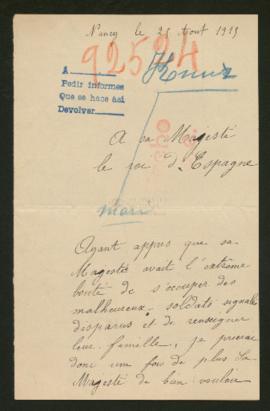 Nancy le 25 Aout 1915
92524
A
Pedir informes
Que se hace así
Devolver
A sa Magesté
le roi d'Espagne
mari
Ayant appris que sa
Magesté avait l'extrême
bonté de s'occuper des
malheureux soldats signalés
disparus et de renseigner
leur famille, je
donc une fois de plus Sa
Magesté de bien vouloir